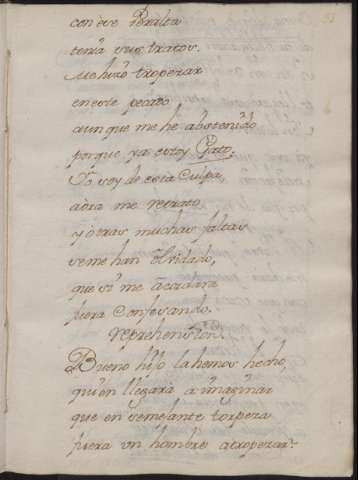 con ese Peralta
tenia sus tratos.
Me hizo tropezar
en este pecado
aunque me he abstenido
porque ya estoy Gato.
Yo soy de esta Culpa,
aora me retrato
y otras muchas faltas
se me han olvidado,
que si me acordara
fuera Confesando.
reprehension.
Bueno hijo la hemos hecho,
quien llegara a imaginar
que en semejante torpeza
fuera un hombre atropezar.